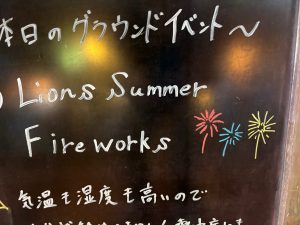 本日のグラウンドイベント〜
Lions Summer
Fireworks
気温も湿度も高いので